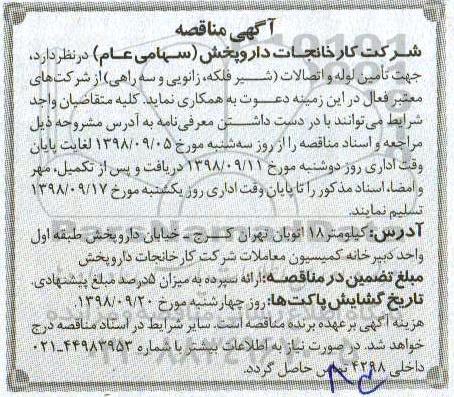 آگهی مناقصه
شرکت کارخانجات داروپخش (سهامی عام) در نظر دارد،
جهت تأمین لوله و اتصالات (شیر فلکه، زانویی و سه راهی) از شرکت‌های
معتبر فعال در این زمینه دعوت به همکاری نماید. کلیه متقاضیان واجد
شرایط می‌توانند با در دست داشتن معرفی‌نامه به آدرس مشروحه ذیل
مراجعه و اسناد مناقصه را از روز سه‌شنبه مورخ ۱۳۹۸/۰۹/۰۵ لغایت پایان
وقت اداری روز دوشنبه مورخ ۱۳۹۸/۰۹/۱۱ دریافت و پس از تکمیل، مهر
و امضا، اسناد مذکور را تا پایان وقت اداری روز یکشنبه مورخ ۱۳۹۸/۰۹/۱۷
تسلیم نمایند.
آدرس: کیلومتر ۱۸ اتوبان تهران کرج ـ خیابان داروپخش طبقه اول
واحد دبیرخانه کمیسیون معاملات شرکت کارخانجات داروپخش
مبلغ تضمین در مناقصه: ارائه سپرده به میزان ۵درصد مبلغ پیشنهادی.
تاریخ گشایش پاکت‌ها: روز چهارشنبه مورخ ۱۳۹۸/۰۹/۲۰
هزینه آگهی بر عهده برنده مناقصه است. سایر شرایط در اسناد مناقصه درج
خواهد شد. در صورت نیاز به اطلاعات بیشتر با شماره ۴۴۹۸۳۹۵۳-۰۲۱
داخلی ۴۲۹۸ تماس حاصل گردد.